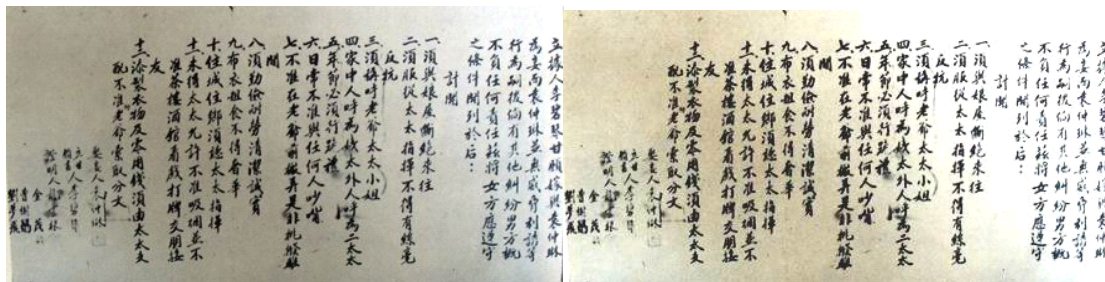 立據人李碧琴甘願嫁與袁仲琳
為妾而袁仲琳並無威脅利誘等
行為嗣後倘有其他糾紛男方概
不負任何責任茲將女方應遵守
之條件開列於后：
計開
一、須與娘屋斷絕來往
二、須服從太太指揮不得有絲毫
反抗
三、須稱呼老爺太太小姐
四、家中人呼為姨太外人呼為二太太
五、年節必須行跪禮
六、日常不准與任何人吵嘴
七、不准在老爺前搬弄是非挑撥離
間
八、須勤儉耐勞清潔誠實
九、布衣粗食不得奢華
十、住城住鄉須聽太太指揮
十一、未得太太允許不准吸烟並不
准茶樓酒館看戲打牌交朋接
友
十二、添製衣物及零用錢須由太太支
配不准老爺索取分文
娶妾人袁仲琳
立甘願書人李碧琴
證明人
金茂
曹樹鵠
劉夢

立據人李碧琴甘願嫁與袁仲琳
為妾而袁仲琳並無威脅利誘等
行為嗣後倘有其他糾紛男方概
不負任何責任茲將女方應遵守
之條件開列於后：
計開
一、須與娘屋斷絕來往
二、須服從太太指揮不得有絲毫
反抗
三、須稱呼老爺太太小姐
四、家中人呼為姨太外人呼為二太太
五、年節必須行跪禮
六、日常不准與任何人吵嘴
七、不准在老爺前搬弄是非挑撥離
間
八、須勤儉耐勞清潔誠實
九、布衣粗食不得奢華
十、住城住鄉須聽太太指揮
十一、未得太太允許不准吸烟並不
准茶樓酒館看戲打牌交朋接
友
十二、添製衣物及零用錢須由太太支
配不准老爺索取分文
娶妾人袁仲琳
立甘願書人李碧琴
證明人
金茂
曹樹鵠
劉夢